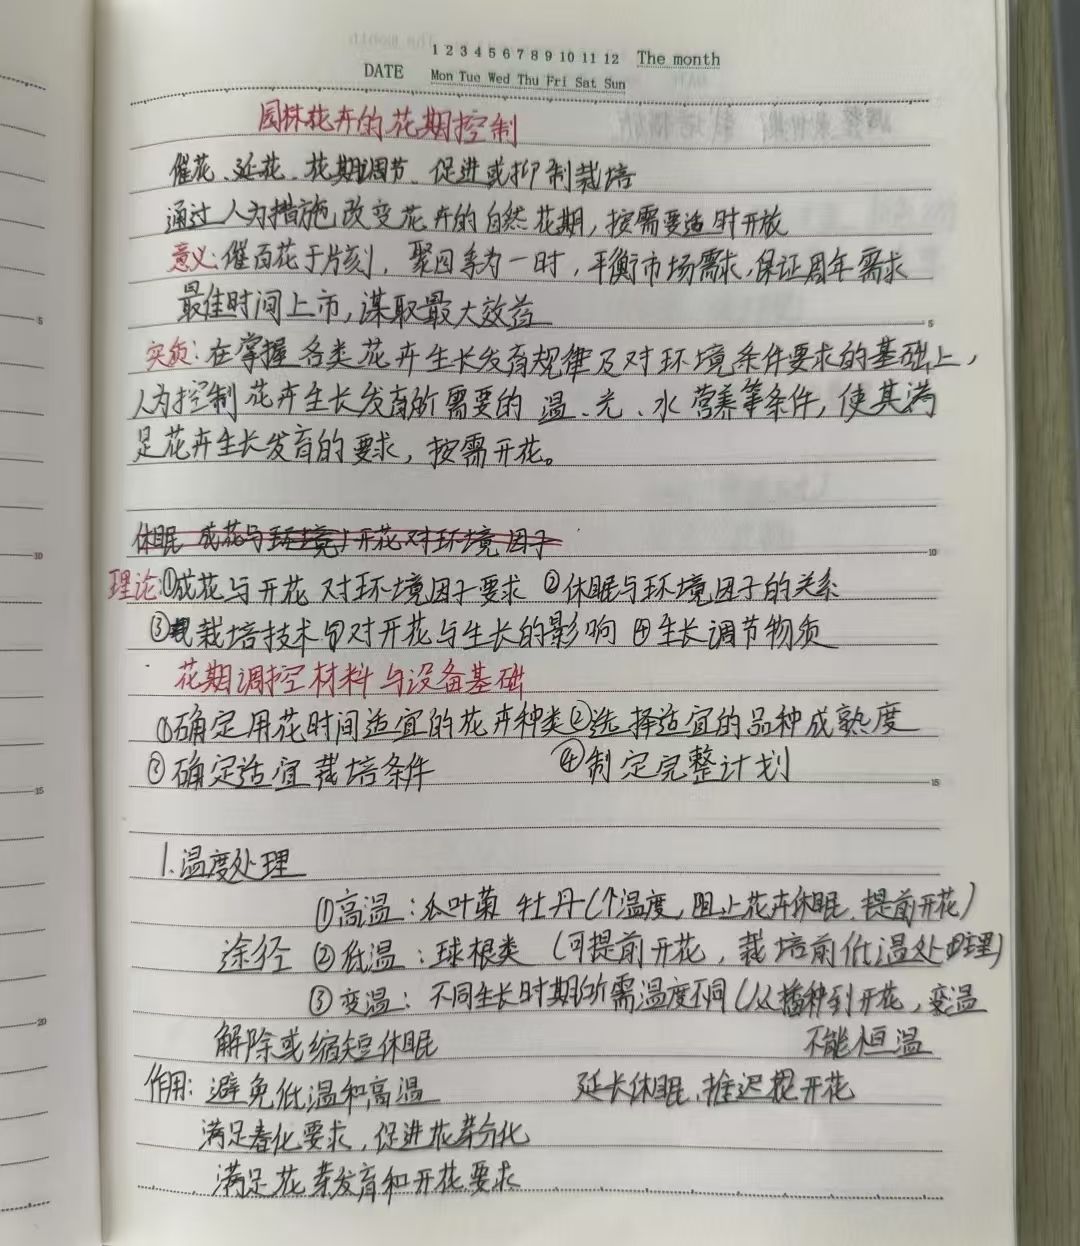 1 2 3 4 5 6 7 8 9 10 11 12 The month
DATE Mon Tue Wed Thu Fri Sat Sun
园林花卉的花期控制
催花、延花、花期调节、促进或抑制栽培
通过人为措施改变花卉的自然花期,按需要适时开放
意义:催百花于片刻,聚四季为一时,平衡市场需求,保证周年需求
最佳时间上市,谋取最大效益
5
实质:在掌握各类花卉生长发育规律及对环境条件要求的基础上,
人为控制花卉生长发育所需要的温、光、水营养等条件,使其满
足花卉生长发育的要求,按需开花。
休眠 成花与环境 开花对环境因子
10
理论:①成花与开花对环境因子要求 ②休眠与环境因子的关系
③栽培技术对开花与生长的影响 ④生长调节物质
花期调控材料与设备基础
①确定用花时间适宜的花卉种类②选择适宜的品种成熟度
③确定适宜栽培条件 ④制定完整计划
15
1.温度处理
①高温:瓜叶菊 牡丹(个温度,阻止花卉休眠、提前开花)
途径 ②低温:球根类 (可提前开花,栽培前低温处理)
③变温:不同生长时期所需温度不同(从播种到开花,变温
解除或缩短休眠 不能恒温
作用:避免低温和高温 延长休眠,推迟开花
满足春化要求,促进花芽分化
满足花芽发育和开花要求
5
10
15
20